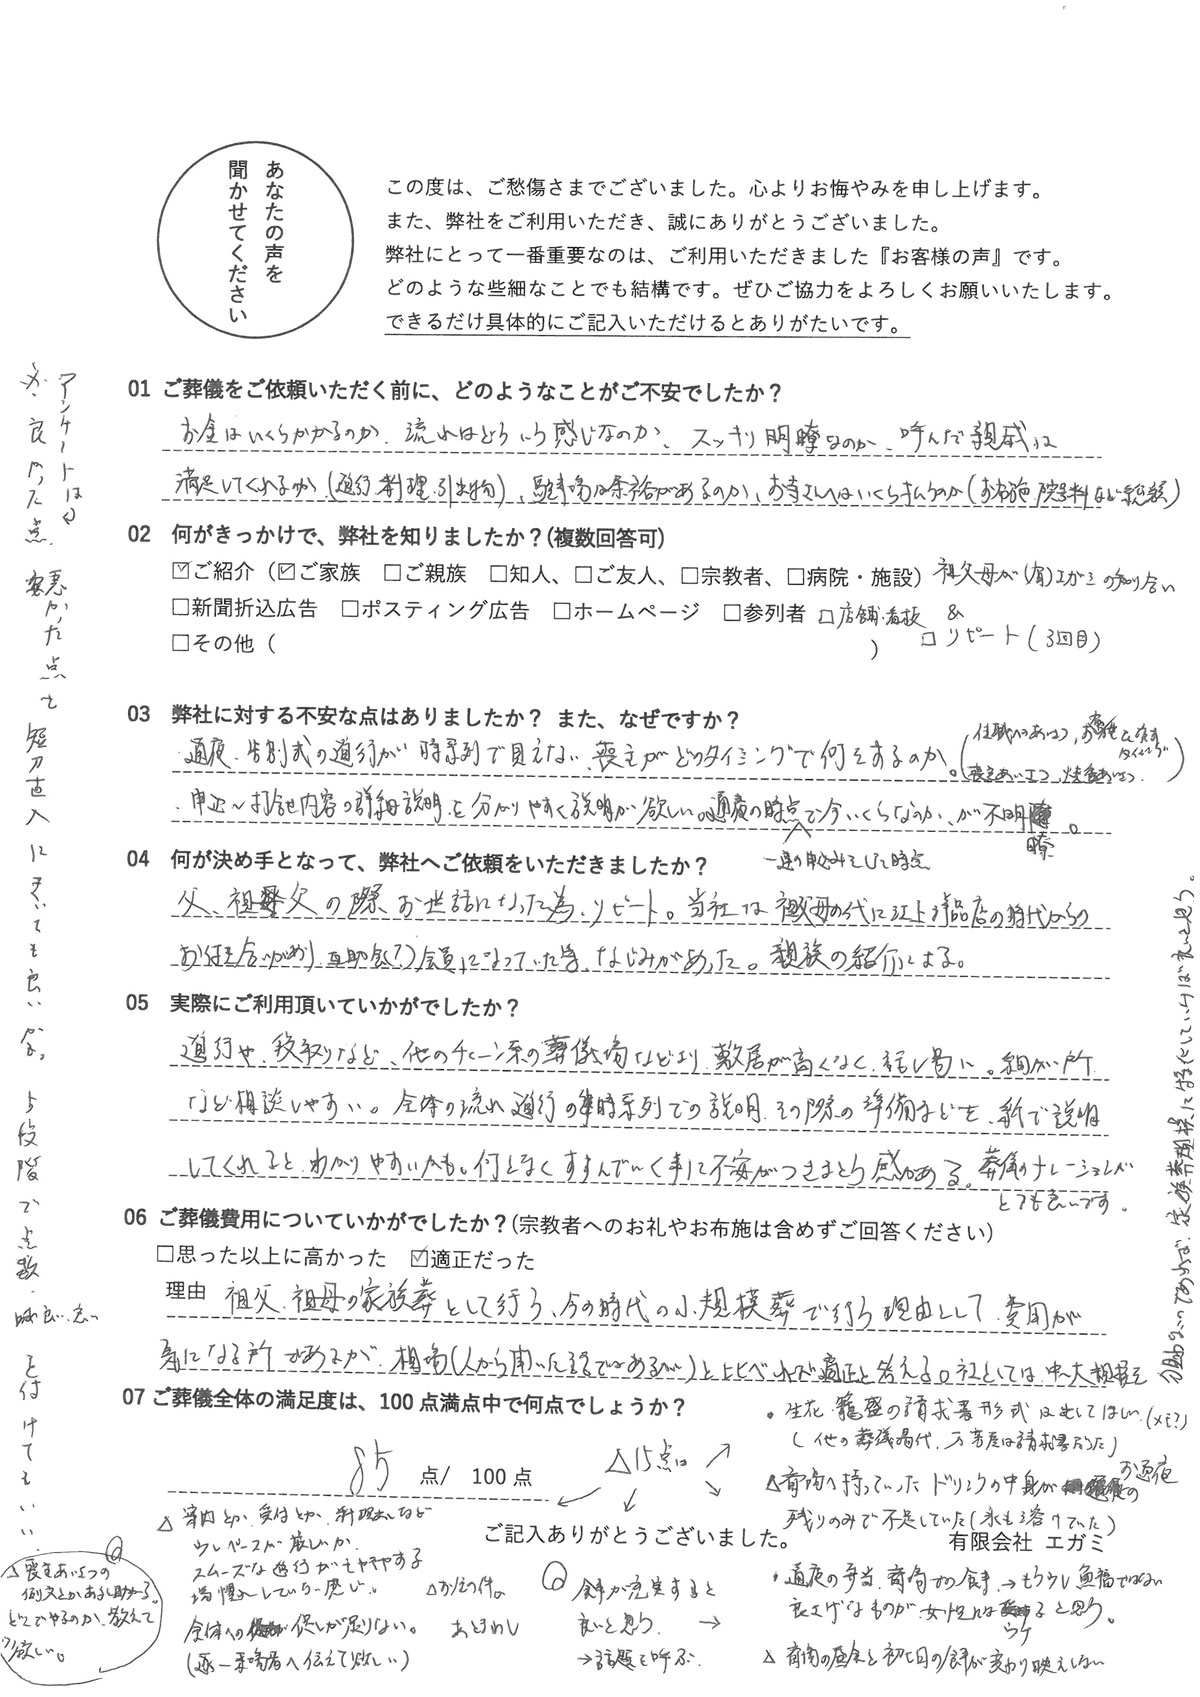 あなたの声を
聞かせてください
この度は、ご愁傷さまでございました。心よりお悔やみを申し上げます。
また、弊社をご利用いただき、誠にありがとうございました。
弊社にとって一番重要なのは、ご利用いただきました『お客様の声』です。
どのような些細なことでも結構です。ぜひご協力をよろしくお願いいたします。
できるだけ具体的にご記入いただけるとありがたいです。
01 ご葬儀をご依頼いただく前に、どのようなことがご不安でしたか？
お金はいくらかかるのか、流れはどういう感じなのか、スッキリ明瞭なのか、呼んだ親戚は
満足してくれるか(進行、料理、引出物)、駐車場は余裕があるのか、お寺さんへはいくら払うのか(お布施、院号料など総額)
02 何がきっかけで、弊社を知りましたか？(複数回答可)
☑ご紹介（☑ご家族 □ご親族 □知人、□ご友人、□宗教者、□病院・施設）祖父母が(有)エガミの知り合い
□新聞折込広告 □ポスティング広告 □ホームページ □参列者 □店舗・看板 &
□その他（ ） □リピート(3回目)
03 弊社に対する不安な点はありましたか？ また、なぜですか？
・通夜、告別式の進行が時系列で見えない、喪主がどのタイミングで何をするのか。
(住職へのあいさつ、お布施を渡すタイミング
喪主あいさつ、焼香あいさつ)
・申込〜打合せ内容の詳細説明を分かりやすく説明が欲しい。通夜の時点で今いくらなのか、が不明瞭。
一連の申込みをした時点
04 何が決め手となって、弊社へご依頼をいただきましたか？
父、祖父の際、お世話になった為、リピート。当社は祖父母の代に江上 店の時代からの
お付き合いがあり、互助会(?)会員になっていた為、なじみがあった。親族の紹介による。
05 実際にご利用頂いていかがでしたか？
進行や、段取りなど、他のチェーン系の葬儀場などより、敷居が高くなく、話し易い。細かい所
など相談しやすい。全体の流れ、進行の時系列での説明、その際の準備などを、紙で説明
してくれると、わかりやすいかも。何となくすすんでいく事に不安がつきまとう感がある。葬儀のナレーションが
とても良いです。
06 ご葬儀費用についていかがでしたか？(宗教者へのお礼やお布施は含めずご回答ください)
□思った以上に高かった ☑適正だった
理由 祖父、祖母の家族葬として行う、今の時代の小規模葬で行う理由として、費用が
気になる所があるが、相場(人から聞いた話ではあるが)と比べれば適正と答える。社としては、中〜大規模を
助ないであろうが、家族葬規模に特化していけば良いと思う。
07 ご葬儀全体の満足度は、100 点満点中で何点でしょうか？
85 点/ 100 点
△15点は
・生花、籠盛の請求書形式は出してほしい(メモ?)
(他の葬儀場代、 は請求書だった)
△斎場へ持っていったドリンクの中身がお通夜の
残りのみで不足していた(氷も溶けていた)
・通夜の弁当、斎場での食事、→もう少し魚 ではない
良さげなものが女性にはウケると思う。
△斎場の昼食と初七日の食事が変わり映えしない
△案内とか、受付とか、料理出しなど
少しペースが厳しいか、
スムーズな進行がモヤモヤする
場慣れしていない感じ。
全体への促しが足りない。
(逐一来場者へ伝えて欲しい)
△お伝の件。
あとまわし
◎食事が充実すると
良いと思う。
→話題を呼ぶ。
ご記入ありがとうございました。
有限会社 エガミ
アンケートは
良かった点、悪かった点を短刀直入にきいても良いかな。5段階で点数、良い、悪いを付けてもいい。
△喪主あいさつの
例文とかあると助かる。
どこでやるのか、教えて
欲しい。